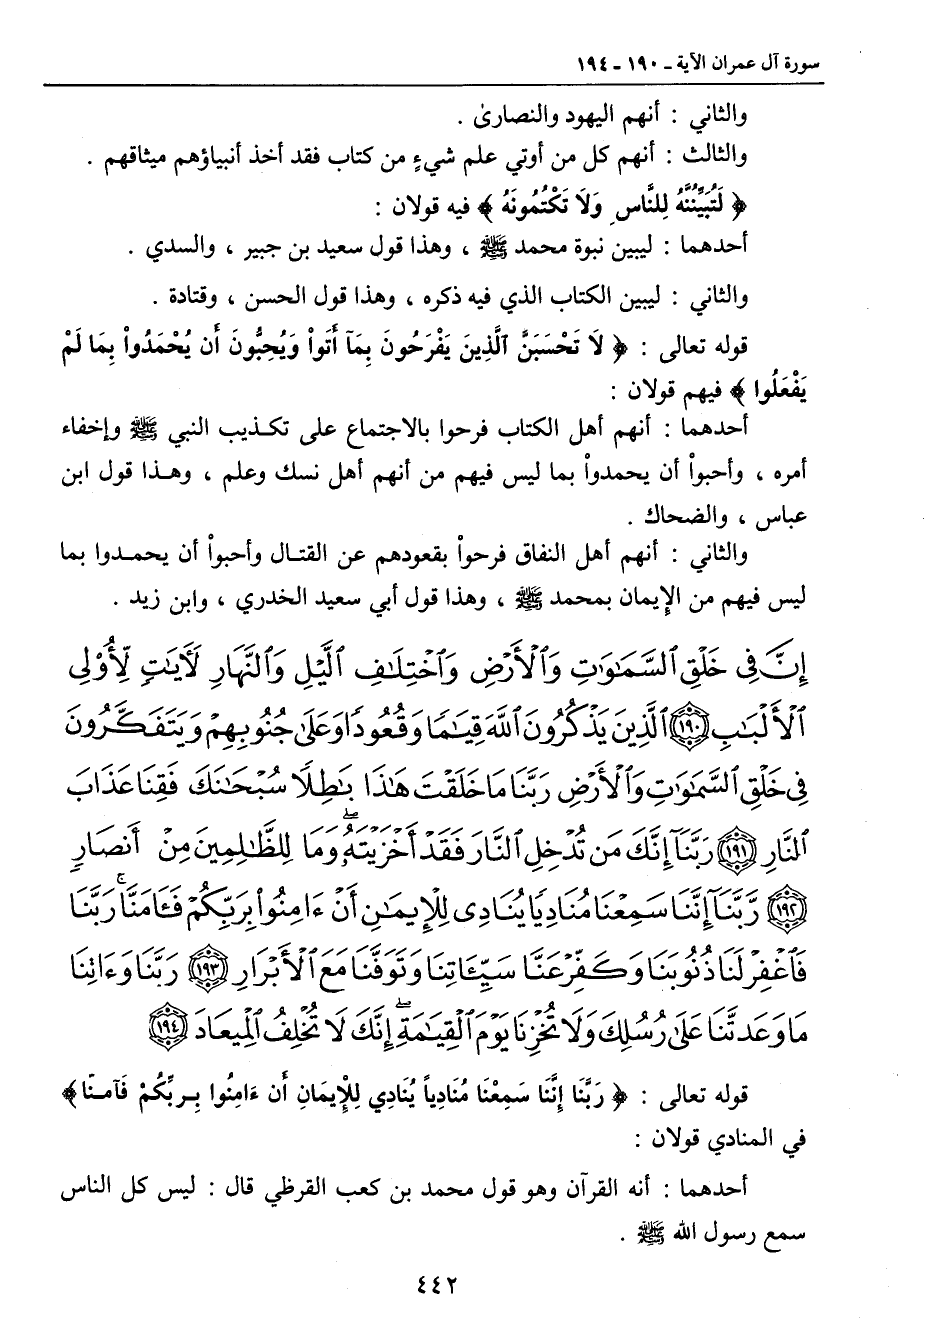 سورة آل عمران الآية ـ ١٩٠ ـ ١٩٤
والثاني : أنهم اليهود والنصارىٰ .
والثالث : أنهم كل من أوتي علم شيءٍ من كتاب فقد أخذ أنبياؤهم ميثاقهم .
﴿ لَتُبَيِّنُنَّهُ لِلنَّاسِ وَلَا تَكْتُمُونَهُ ﴾ فيه قولان :
أحدهما : ليبين نبوة محمد ﷺ ، وهذا قول سعيد بن جبير ، والسدي .
والثاني : ليبين الكتاب الذي فيه ذكره ، وهذا قول الحسن ، وقتادة .
قوله تعالى : ﴿ لَا تَحْسَبَنَّ ٱلَّذِينَ يَفْرَحُونَ بِمَآ أَتَواْ وَيُحِبُّونَ أَن يُحْمَدُواْ بِمَا لَمْ
يَفْعَلُوا ﴾ فيهم قولان :
أحدهما : أنهم أهل الكتاب فرحوا بالاجتماع على تكذيب النبي ﷺ وإخفاء
أمره ، وأحبواْ أن يحمدواْ بما ليس فيهم من أنهم أهل نسك وعلم ، وهذا قول ابن
عباس ، والضحاك .
والثاني : أنهم أهل النفاق فرحواْ بقعودهم عن القتال وأحبواْ أن يحمدوا بما
ليس فيهم من الإيمان بمحمد ﷺ ، وهذا قول أبي سعيد الخدري ، وابن زيد .
إِنَّ فِى خَلْقِ ٱلسَّمَٰوَٰتِ وَٱلْأَرْضِ وَٱخْتِلَٰفِ ٱلَّيْلِ وَٱلنَّهَارِ لَأٓيَٰتٍ لِّأُو۟لِى
ٱلْأَلْبَٰبِ ۝١٩٠ ٱلَّذِينَ يَذْكُرُونَ ٱللَّهَ قِيَٰمًا وَقُعُودًا وَعَلَىٰ جُنُوبِهِمْ وَيَتَفَكَّرُونَ
فِى خَلْقِ ٱلسَّمَٰوَٰتِ وَٱلْأَرْضِ رَبَّنَا مَا خَلَقْتَ هَٰذَا بَٰطِلًا سُبْحَٰنَكَ فَقِنَا عَذَابَ
ٱلنَّارِ ۝١٩١ رَبَّنَآ إِنَّكَ مَن تُدْخِلِ ٱلنَّارَ فَقَدْ أَخْزَيْتَهُۥ ۖ وَمَا لِلظَّٰلِمِينَ مِنْ أَنصَارٍ
۝١٩٢ رَّبَّنَآ إِنَّنَا سَمِعْنَا مُنَادِيًا يُنَادِى لِلْإِيمَٰنِ أَنْ ءَامِنُوا۟ بِرَبِّكُمْ فَـَٔامَنَّا ۚ رَبَّنَا
فَٱغْفِرْ لَنَا ذُنُوبَنَا وَكَفِّرْ عَنَّا سَيِّـَٔاتِنَا وَتَوَفَّنَا مَعَ ٱلْأَبْرَارِ ۝١٩٣ رَبَّنَا وَءَاتِنَا
مَا وَعَدتَّنَا عَلَىٰ رُسُلِكَ وَلَا تُخْزِنَا يَوْمَ ٱلْقِيَٰمَةِ ۖ إِنَّكَ لَا تُخْلِفُ ٱلْمِيعَادَ ۝١٩٤
قوله تعالى : ﴿ رَبَّنَا إِنَّنَا سَمِعْنَا مُنَادِياً يُنَادِي لِلْإِيمَانِ أَن ءَامِنُوا بِرَبِّكُمْ فَآمنَّا﴾
في المنادي قولان :
أحدهما : أنه القرآن وهو قول محمد بن كعب القرظي قال : ليس كل الناس
سمع رسول الله ﷺ .
٤٤٢